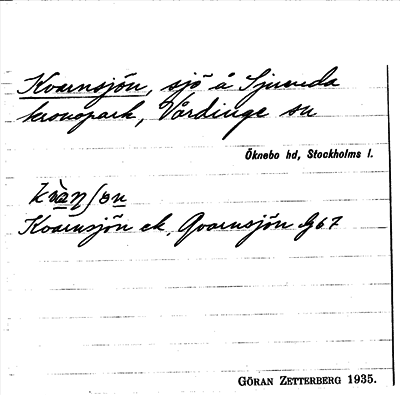 Kvarnsjön, sjö å Sjunda
kronopark, Vårdinge sn
Öknebo hd, Stockholms l.
Kvarnsjön ek, Qvarnsjön
GÖRAN ZETTERBERG 1935.